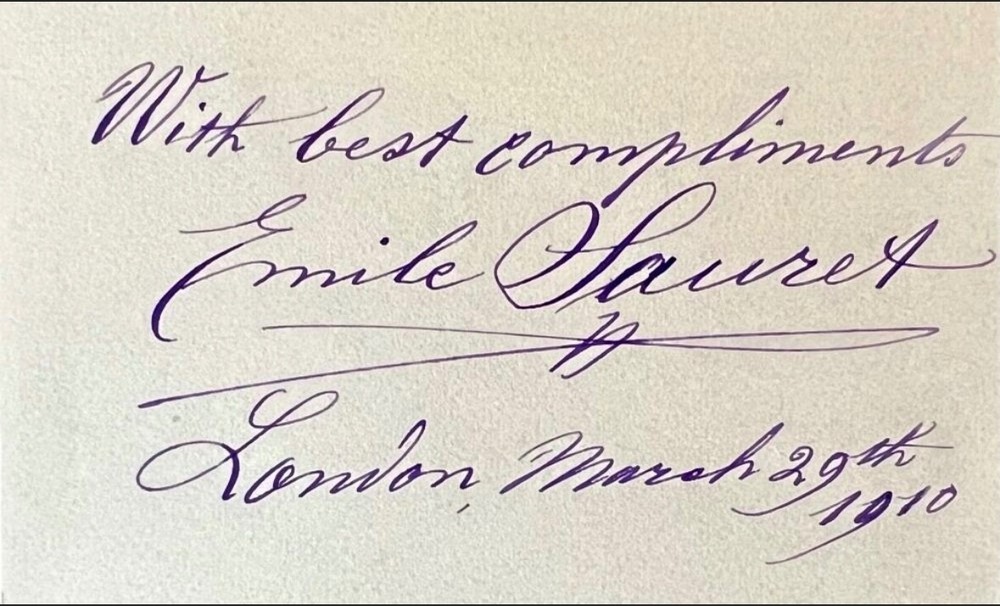 With best compliments
Emile Sauret
London, March 29th
1910